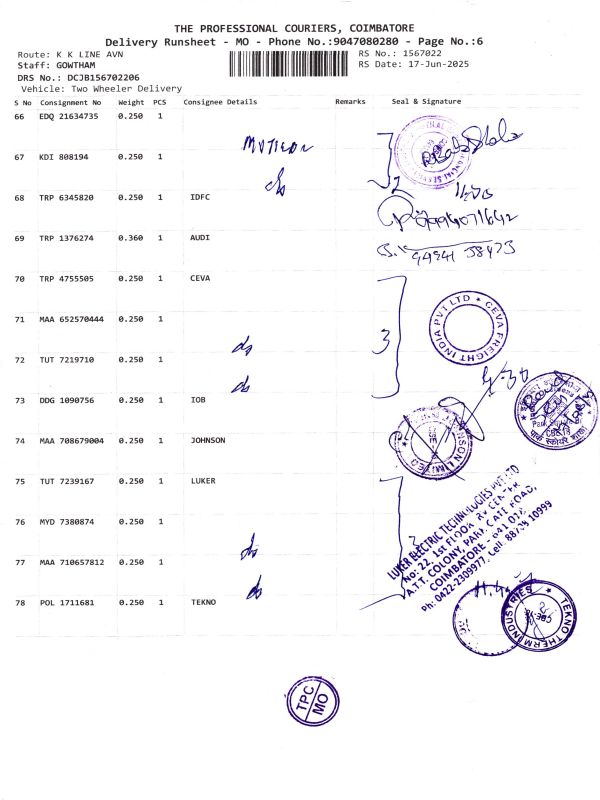 THE PROFESSIONAL COURIERS, COIMBATORE
Delivery Runsheet - MO - Phone No.:9047080280 - Page No.:6
Route: K K LINE AVN
RS No.: 1567022
Staff: GOWTHAM
RS Date: 17-Jun-2025
DRS No.: DCJB156702206
Vehicle: Two Wheeler Delivery
S No Consignment No Weight PCS Consignee Details Remarks Seal & Signature
66 EDQ 21634735 0.250 1
67 KDI 808194 0.250 1
68 TRP 6345820 0.250 1 IDFC
69 TRP 1376274 0.360 1 AUDI
94941 38473
70 TRP 4755505 0.250 1 CEVA
CEVA FREIGHT INDIA PVT LTD
71 MAA 652570444 0.250 1
3
72 TUT 7219710 0.250 1
73 DDG 1090756 0.250 1 IOB
74 MAA 708679004 0.250 1 JOHNSON
75 TUT 7239167 0.250 1 LUKER
LUKER ELECTRIC TECHNOLOGIES PVT LTD
No: 22, 1st FLOOR,
A.T.T. COLONY, PARK GATE ROAD,
COIMBATORE - 641 018
Ph: 0422-2309977, Cell:
76 MYD 7380874 0.250 1
77 MAA 710657812 0.250 1
78 POL 1711681 0.250 1 TEKNO
TEKNO THERM INDUSTRIES
TPC
MO